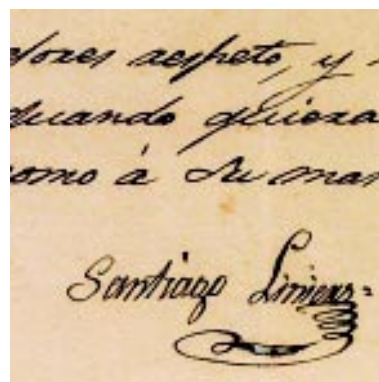 dores respeto, y
quando quiera
como á su man
Santiago Liniers=